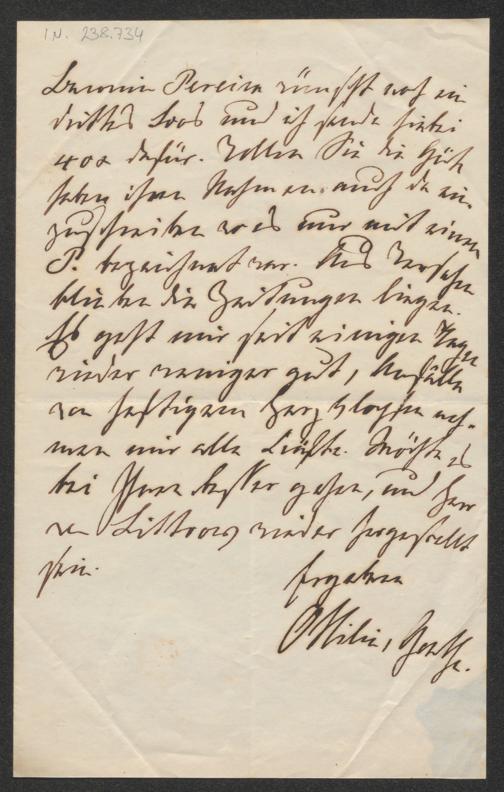 I.N. 238.734
Baronin Pereira wünscht noch ein
drittes Loos und ich sende hiebei
dafür. Wollen Sie die Güte
haben ihren Nahmen auch da ein-
zuschreiben wo es nur mit einem
P. bezeichnet war. Aus Versehn
blieben die Zeitungen liegen.
Es geht mir seit einigen Tagen
wieder weniger gut, Anfälle
von heftigem Herzklopfen neh-
men mir alle Kräfte. Möchte es
bei Ihnen besser gehen, und Herr
von Littrow wieder hergestellt
sein.
Ergebene
Ottilie, Goethe.